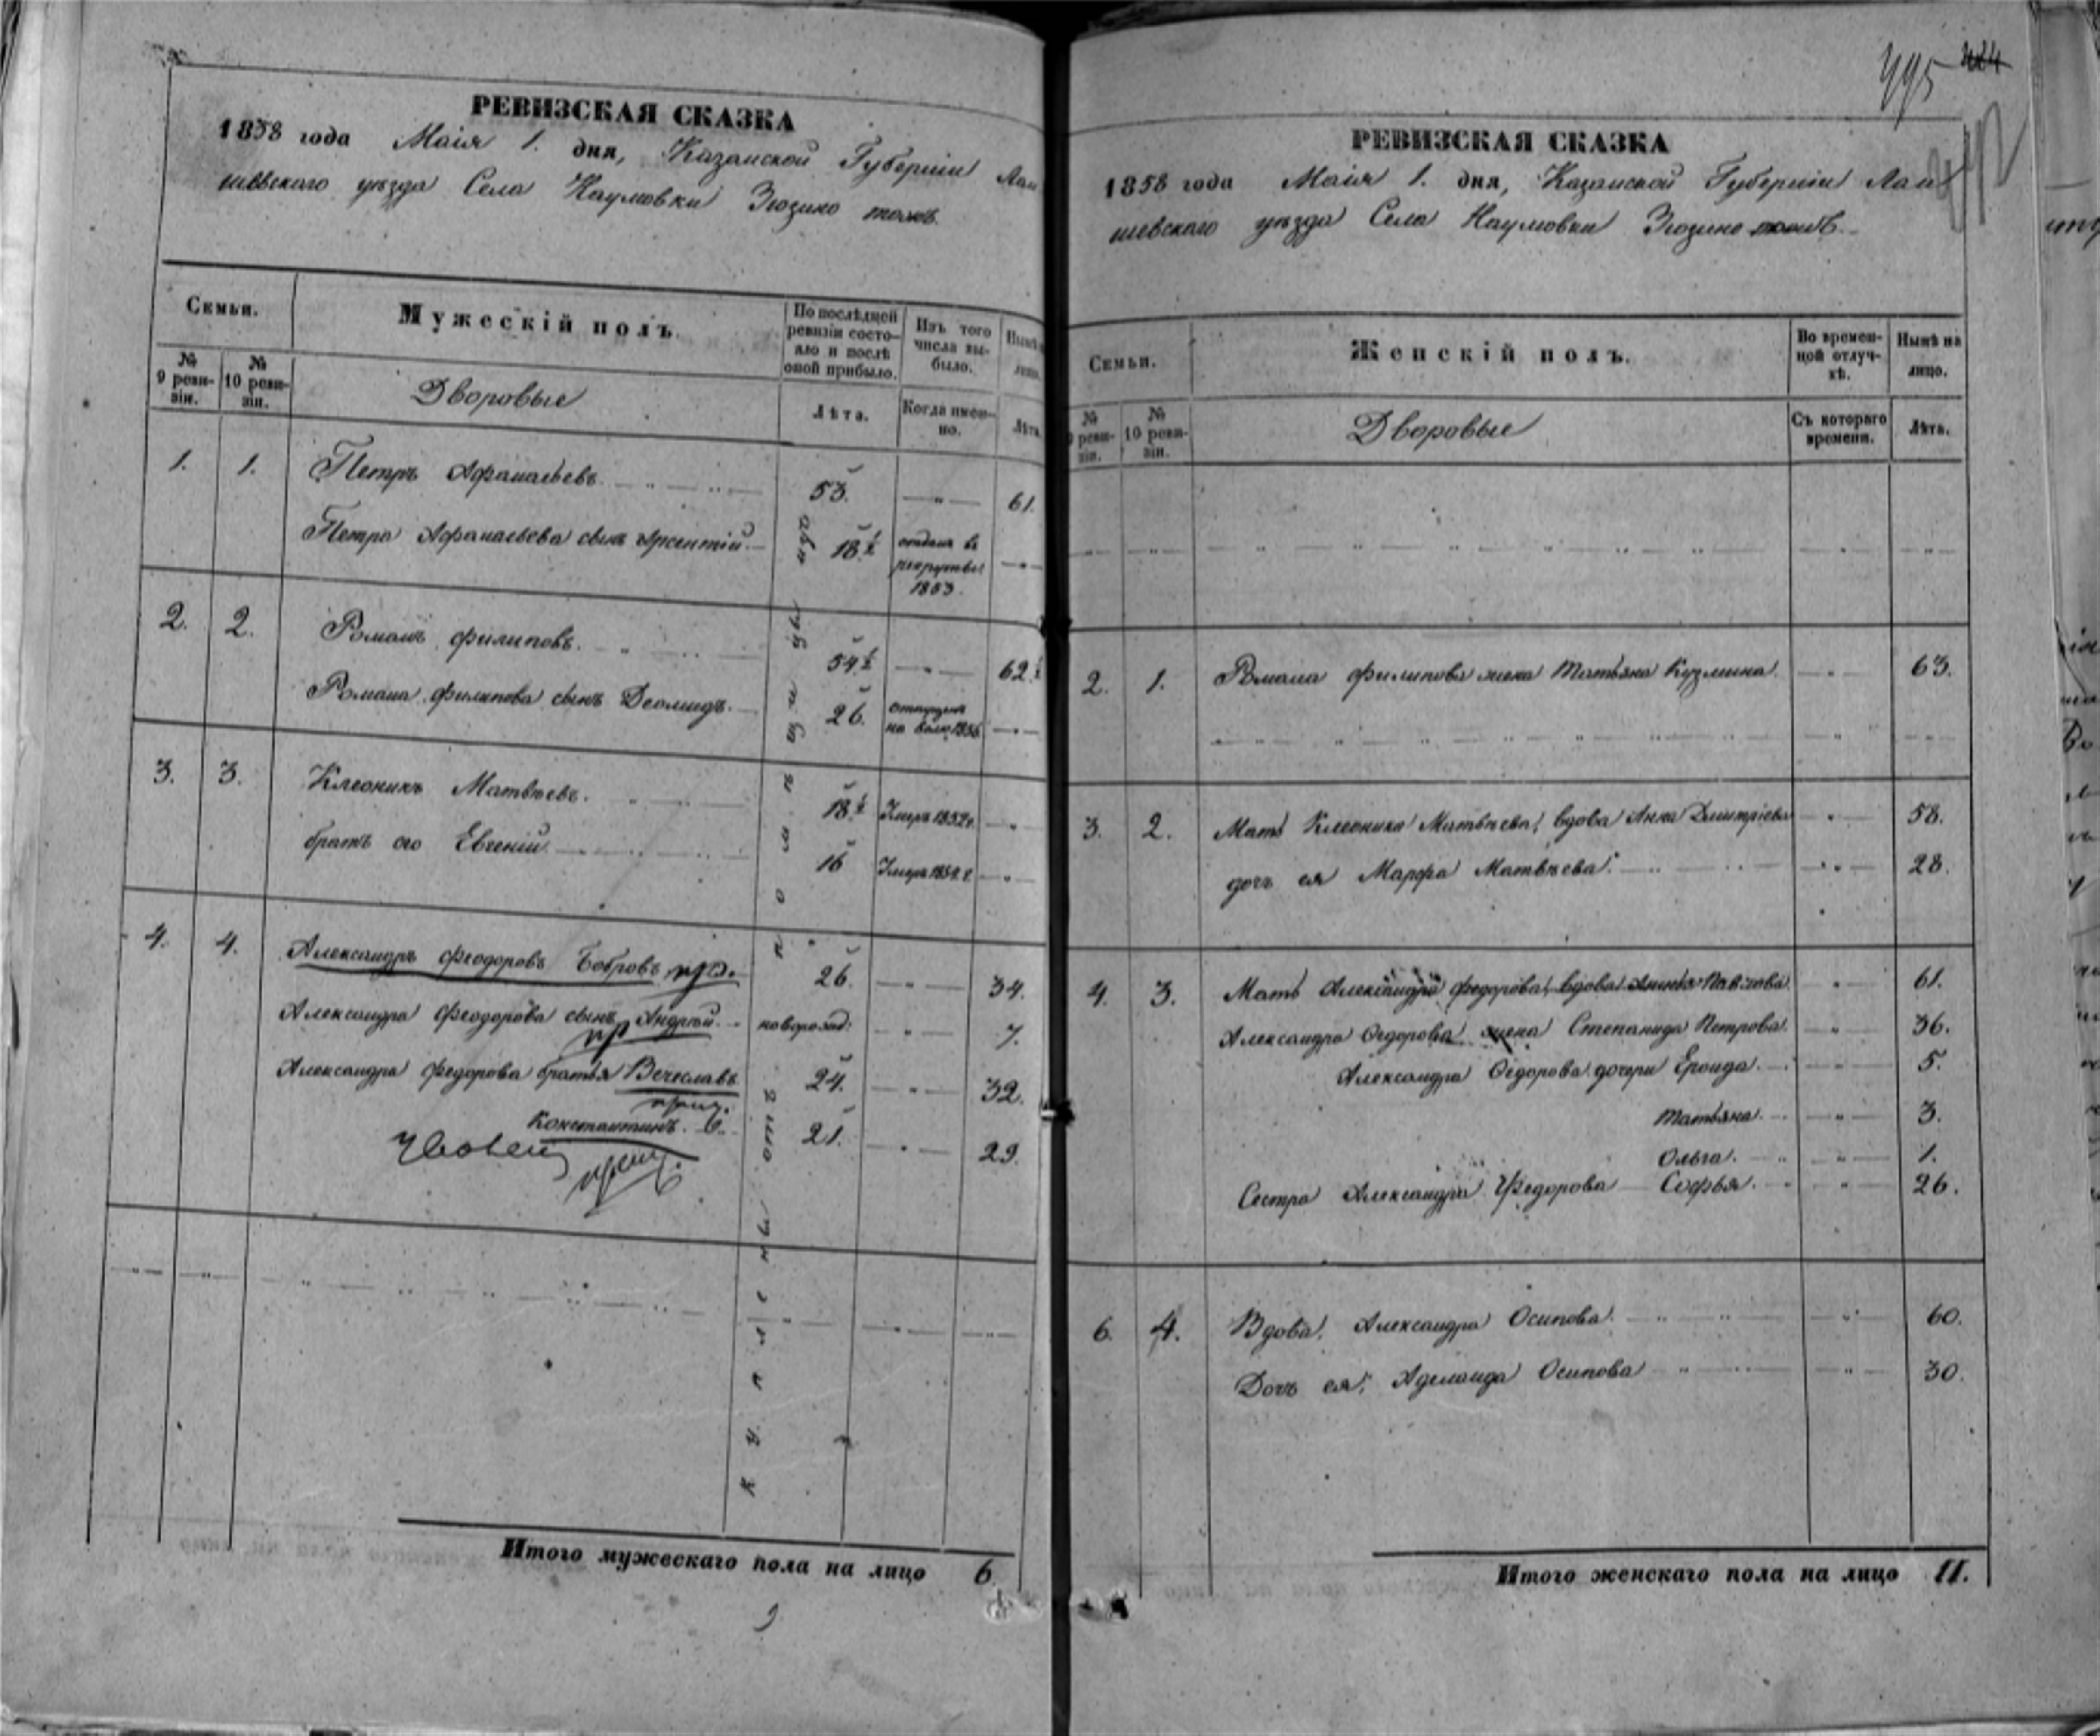 РЕВИЗСКАЯ СКАЗКА
1858 года Маія 1. дня, Казанской Губерніи Лаи
шевскаго уѣзда Села Наумовки Зюзино тожъ.
Семьи.
Мужескій полъ.
По послѣдней ревизіи состояло и послѣ оной прибыло.
Изъ того числа выбыло.
Нынѣ на лицо.
№ 9 ревизіи.
№ 10 ревизіи.
Дворовые
Лѣта.
Когда именно.
Лѣта.
1. 1. Петръ Афанасьевъ 53. 61.
Петра Афанасьева сынъ Арсентій 18 ½ отданъ въ рекруты 1853.
2. 2. Романъ Филиповъ. 54 ½ 62 ½
Романа Филипова сынъ Деомидъ. 26. отпущенъ на волю 1856
3. 3. Клеоникъ Матвѣевъ. 18 ½ Умеръ 1852 г.
братъ его Евгеній 16 Умеръ 1854 г.
4. 4. Александръ Феодоровъ Бобровъ 26. 34.
Александра Феодорова сынъ Андрей новорожд: 7.
Александра Федорова братья Вечеславъ 24. 32.
Константинъ. 21. 29.
Куплены отъ помѣщи
Итого мужескаго пола на лицо 6.
495 424
РЕВИЗСКАЯ СКАЗКА
1858 года Маія 1. дня, Казанской Губерніи Лаи
шевскаго уѣзда Села Наумовки Зюзино тожъ.
Семьи.
Женскій полъ.
Во временной отлучкѣ.
Нынѣ на лицо.
№ 9 ревизіи.
№ 10 ревизіи.
Дворовые
Съ котораго времени.
Лѣта.
2. 1. Романа Филипова жена Татьяна Кузмина. 63.
3. 2. Мать Клеоника Матвѣева, вдова Анна Дмитріева 58.
дочь ея Марфа Матвѣева. 28.
4. 3. Мать Александра Федорова, вдова Павлова 61.
Александра Федорова жена Степанида Петрова. 36.
Александра Федорова дочери Ероида. 5.
Татьяна. 3.
Ольга. 1.
Сестра Александра Федорова Софья. 26.
6. 4. Вдова, Александра Осипова. 60.
Дочь ея, Аделаида Осипова 30.
Итого женскаго пола на лицо 11.